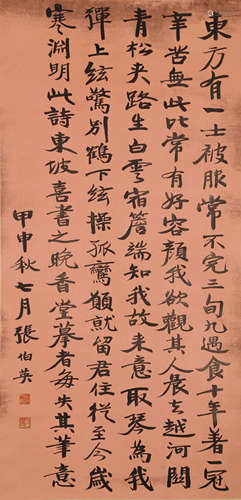 東方有一士被服常不完三旬九遇食十年著一冠
辛苦無此比常有好容顏我欲觀其人晨去越河關
青松夾路生白雲宿簷端知我故來意取琴為我
彈上絃驚別鶴下絃操孤鸞願就留君住從至今歲
寒淵明此詩東坡喜書之晚香堂摹者每失其筆意
甲申秋七月張伯英